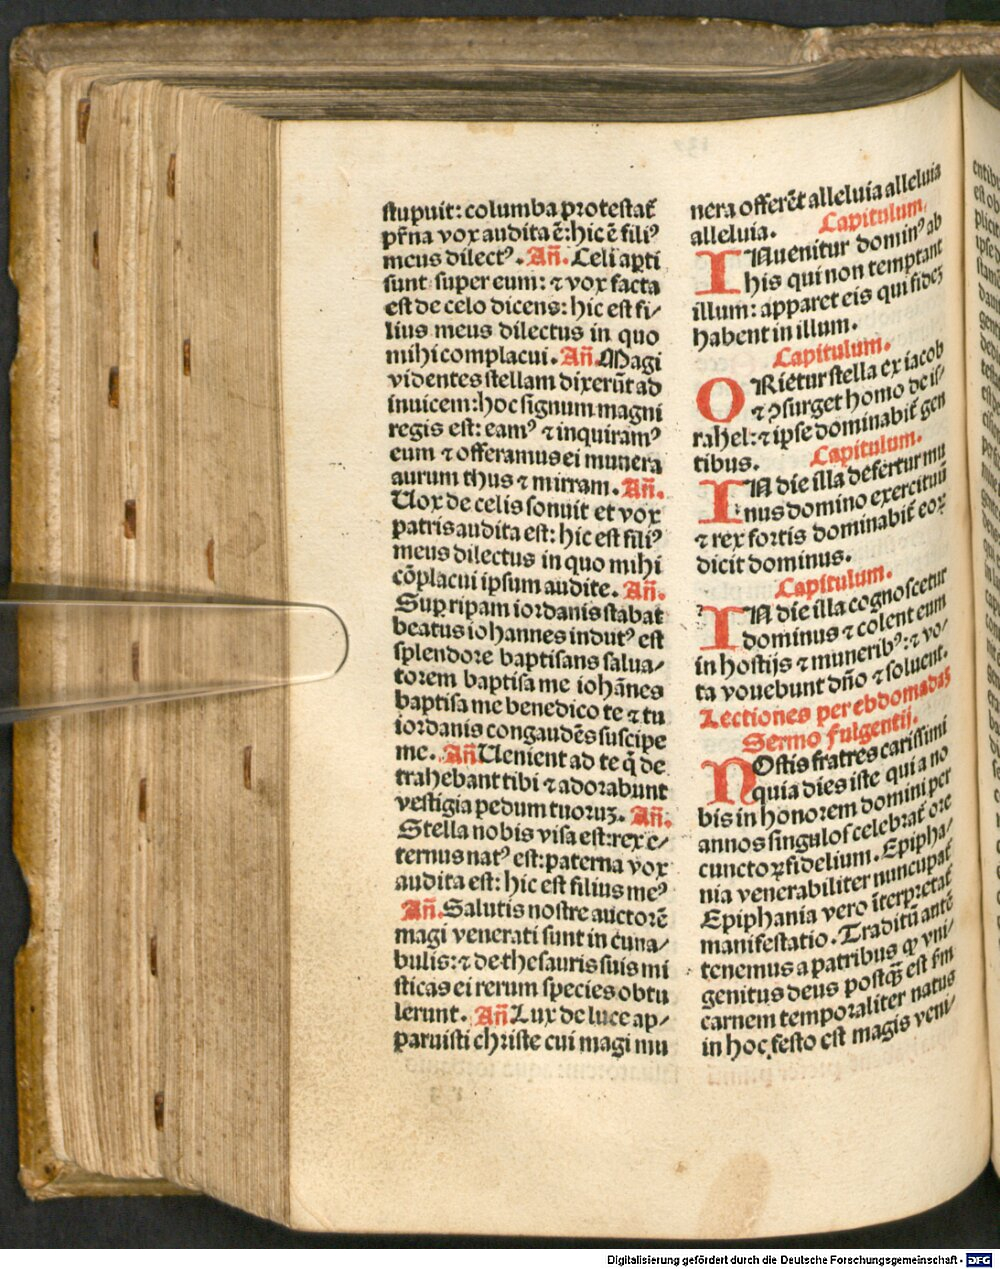 stupuit: columba protestat᷑
pr̄na vox audita ē: hic ē filiꝰ
meus dilectꝰ. Añ. Celi aꝑti
sunt super eum: ⁊ vox facta
est de celo dicens: hic est fi⸗
lius meus dilectus in quo
mihi complacui. Añ. Magi
videntes stellam dixerūt ad
inuicem: hoc signum magni
regis est: eamꝰ ⁊ inquiramꝰ
eum ⁊ offeramus ei munera
aurum thus ⁊ mirram. Añ.
Uox de celis sonuit et vox
patris audita est: hic est filiꝰ
meus dilectus in quo mihi
cōplacui ipsum audite. Añ.
Suꝑ ripam iordanis stabat
beatus iohannes indutꝰ est
splendore baptisans salua⸗
torem baptisa me iohānes
baptisa me benedico te ⁊ tu
iordanis congaudēs suscipe
me. Añ Uenient ad te q̄ de
trahebant tibi ⁊ adorabunt
vestigia pedum tuoruꝫ. Añ.
Stella nobis visa est: rex e⸗
ternus natꝰ est: paterna vox
audita est: hic est filius meꝰ
Añ. Salutis nostre auctorē
magi venerati sunt in cuna⸗
bulis: ⁊ de thesauris suis mi
sticas ei rerum species obtu
lerunt. Añ Lux de luce ap⸗
paruisti christe cui magi mu
nera offerēt alleluia alleluia
alleluia. Capitulum.
INuenitur dominꝰ ab
his qui non temptant
illum: apparet eis qui fideꝫ
habent in illum.
Capitulum.
ORietur stella ex iacob
⁊ ꝯsurget homo de is⸗
rahel: ⁊ ipse dominabit᷑ gen
tibus. Capitulum.
IN die illa defertur mu
nus domino exercituū
⁊ rex fortis dominabit᷑ eoꝝ
dicit dominus.
Capitulum.
IN die illa cognoscetur
dominus ⁊ colent eum
in hostijs ⁊ muneribꝰ: ⁊ vo⸗
ta vouebunt dño ⁊ soluent.
Lectiones per ebdomadaꝫ
Sermo fulgentij.
NOstis fratres carissimi
quia dies iste qui a no
bis in honorem domini per
annos singulos celebrat᷑ ore
cunctoꝝ fidelium. Epipha⸗
nia venerabiliter nuncupat᷑
Epiphania vero īterpretat᷑
manifestatio. Traditū antē
tenemus a patribus ꝙ vni⸗
genitus deus postq̄ȝ est ẜm
carnem temporaliter natus
in hoc festo est magis veni⸗
Digitalisierung gefördert durch die Deutsche Forschungsgemeinschaft - DFG